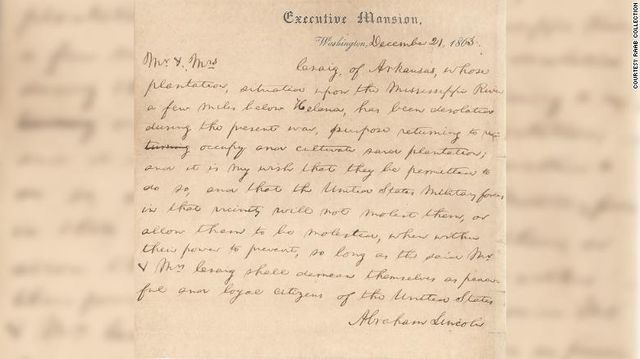 Executive Mansion,
Washington, December 21, 1863.
Mr & Mrs Craig, of Arkansas, whose
plantation, situated upon the Mississippi River
a few miles below Helena, has been desolated
during the present war, purpose returning to re-
turning occupy and cultivate said plantation;
and it is my wish that they be permitted to
do so, and that the United States Military forces
in that vicinity will not molest them, or
allow them to be molested, when within
their power to prevent, so long as the said Mr.
& Mrs Craig shall demean themselves as peace-
ful and loyal citizens of the United States
Abraham Lincoln
COURTESY RAAB COLLECTION